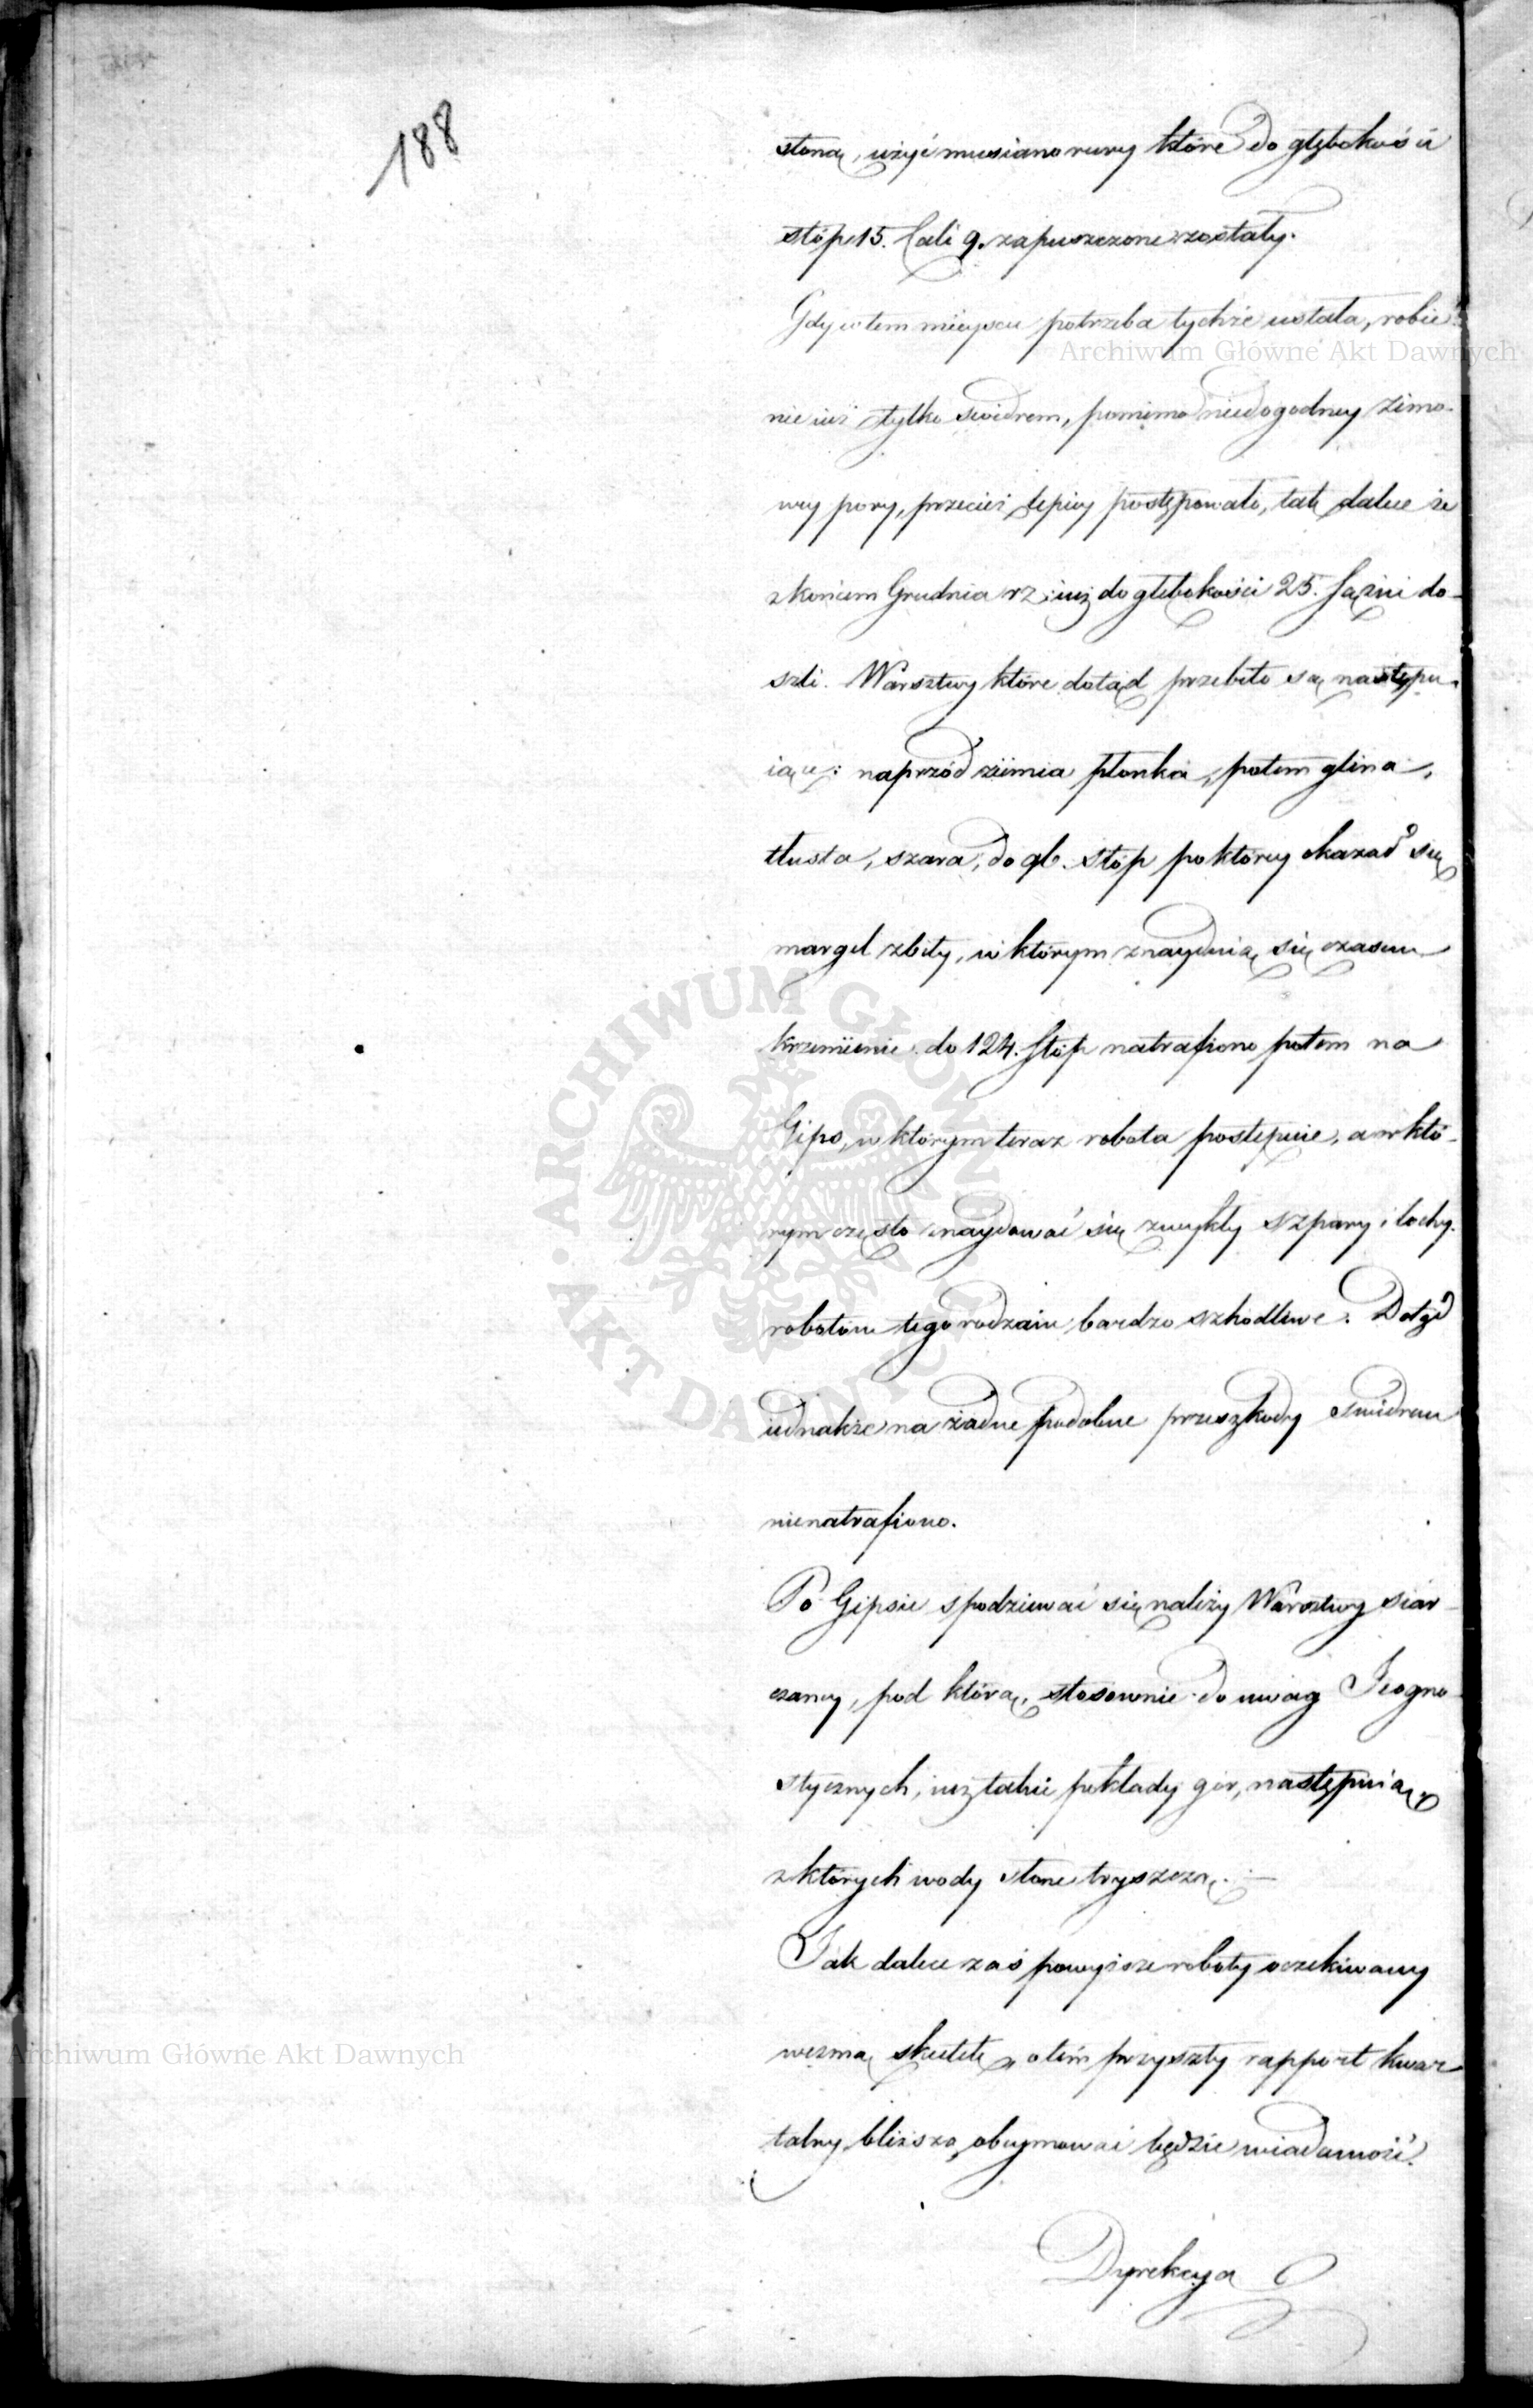 188
słoną, użyć musiano rury które do głębokości
stóp 15. Cali 9. zapuszczone zostały.
Gdy w tem mieyscu potrzeba tychże ustała, robie-
Archiwum Główne Akt Dawnych
nie iuż tylko swidrem, pomimo niedogodney zimo-
wey pory, przecież lepiey postępowało, tak dalece że
z końcem Grudnia rz: iuż do głębokości 25. Sążni do-
szli. Warsztwy które dotąd przebito są następu-
iące: naprzód ziemia płonka, potem glina,
tłusta, szara, do gł. stóp po którey okazał się
margel zbity, w którym znayduią się czasem
krzemienie do 124. Stóp natrafiono potem na
Gips, w którym teraz robota postępuie, a w któ-
rym często znaydować się zwykły szpary i lochy.
robotom tego rodzaiu bardzo szkodliwe. Dotąd
iednakże na żadne podobne przeszkody swidrem
nienatrafiono.
Po Gipsie spodziewać się należy Warsztwy siar-
czaney, pod którą, stosownie do uwag Geogno-
stycznych, iuż takie pokłady gór, następuią
z których wody słone tryszczą.
Jak dalece zaś powyższe roboty oczekiwany
wezmą skutek, o tém przyszły rapport kwar-
Archiwum Główne Akt Dawnych
talny bliższą obeymować będzie wiadomość.
Dyrekcya
ARCHIWUM GŁÓWNE
AKT DAWNYCH